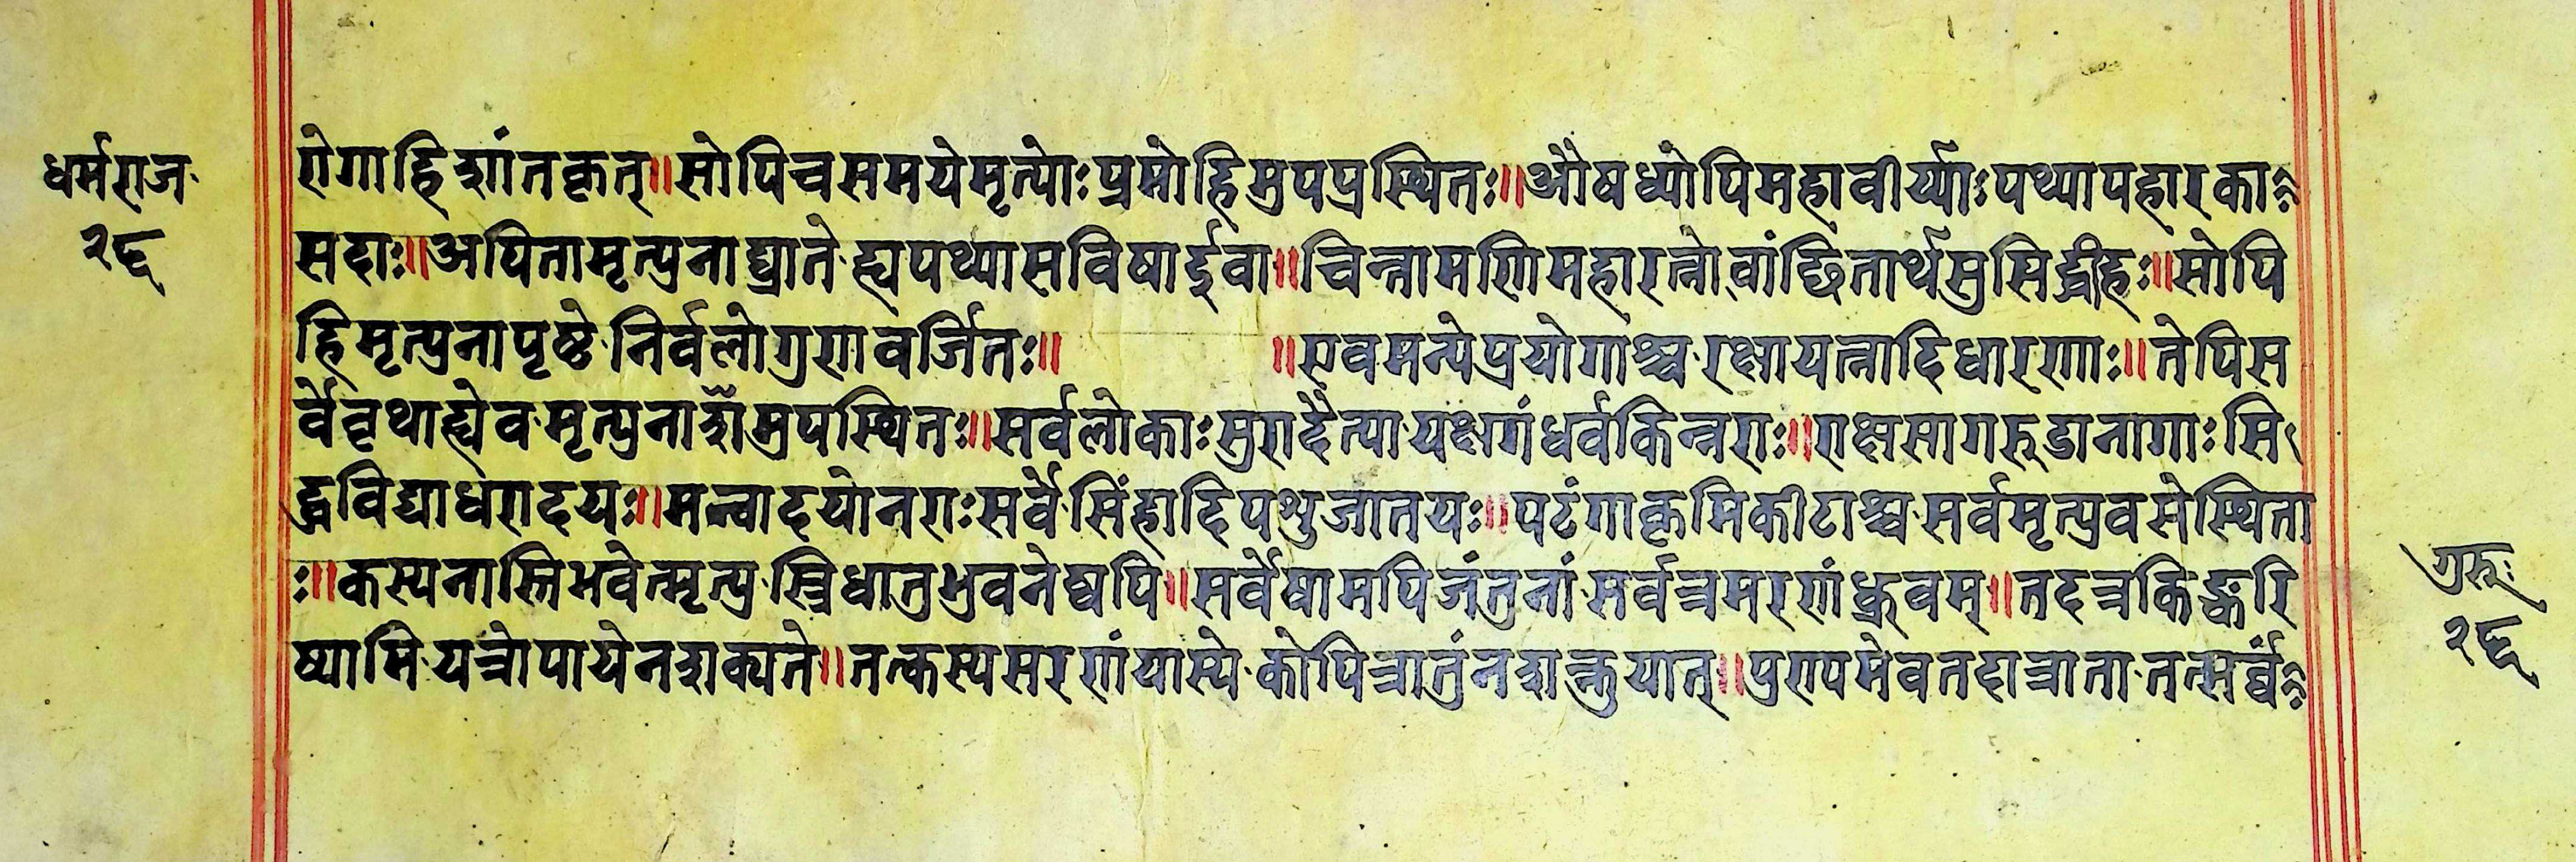 धर्मराज
२६
रोगाहिशांतकृत्॥सोपिचसमयेमृत्योःप्रमोहिमुपप्रस्थितः॥औषध्योपिमहावीर्य्याःपथ्यापहारकाः
सदाः॥अपितामृत्युनाघ्रातेह्यपथ्यासविषार्द्दवा॥चिन्तामणिमहारत्नोवांछितार्थसुसिद्धीहः॥सोपि
हिमृत्युनापृष्टेनिर्वलोगुणवर्जितः॥ ॥एवमन्येप्रयोगाश्चरक्षायत्नादिधारणाः॥तेपिस
र्वेवृथाह्येवमृत्युनाशौमुपस्थितः॥सर्वलोकाःसुरादैत्यायक्षगंधर्वकिन्नराः॥राक्षसागरुडानागाःसि
द्धविद्याधरादयः॥मन्वादयोनराःसर्वेसिंहादिपशुजातयः॥पटंगाकृमिकीटाश्चसर्वमृत्युवसेस्थिता
ः॥कस्यनास्तिभवेत्मृत्युस्त्रिधातुभुवनेष्वपि॥सर्वेषामपिजंतुनांसर्वत्रमरणंध्रुवम्॥तदत्रकिङ्करि
ष्यामियत्रोपायेनशक्यते॥तत्कस्यसरणंयास्येकोपित्रातुंनशक्नुयात्॥पुण्यमेवतदात्रातातत्सर्वंः
गुरूः
२६